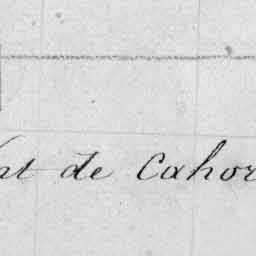 de Cahor